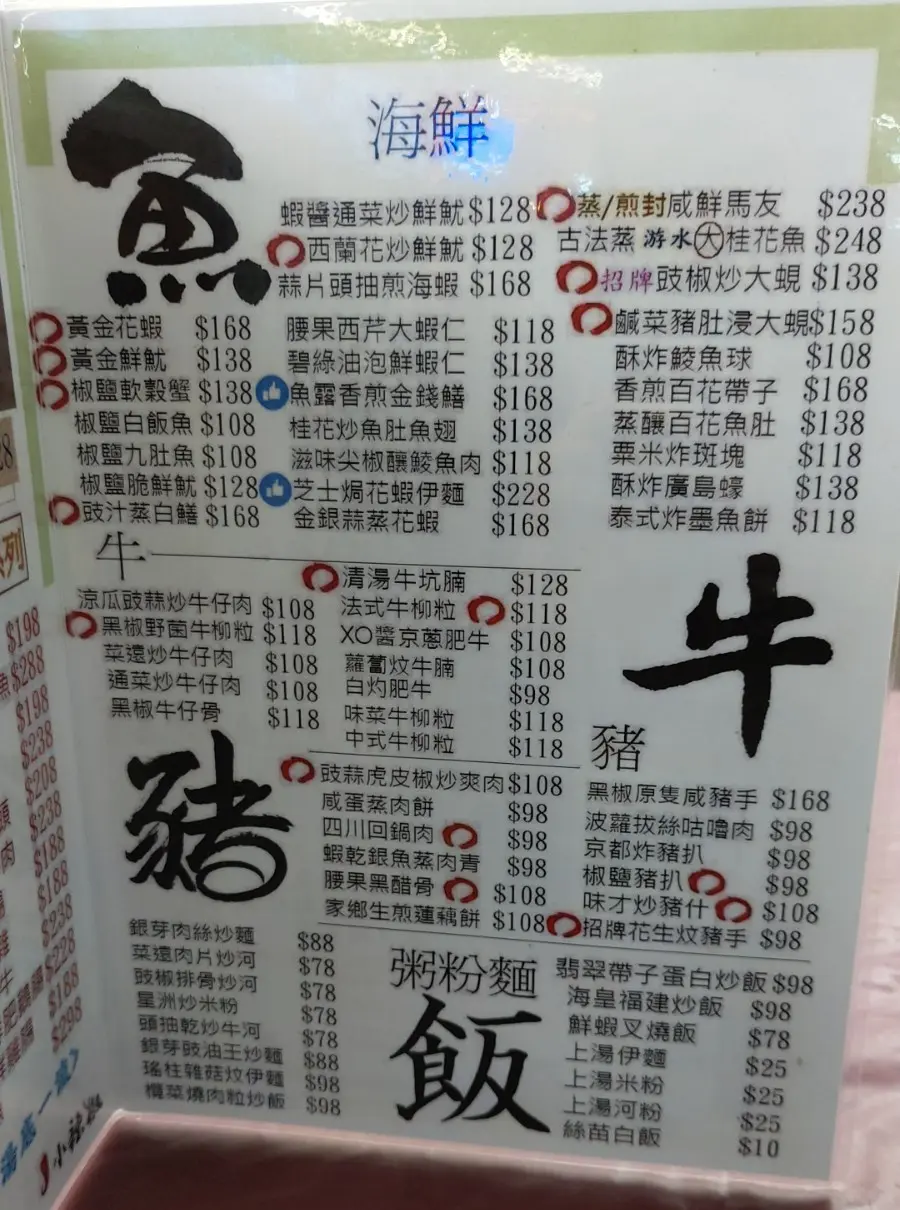 魚
海鮮
蝦醬通菜炒鮮魷 $128
西蘭花炒鮮魷 $128
蒜片頭抽煎海蝦 $168
蒸/煎封咸鮮馬友 $238
古法蒸游水大桂花魚 $248
招牌豉椒炒大蜆 $138
鹹菜豬肚浸大蜆 $158
黃金花蝦 $168
黃金鮮魷 $138
椒鹽軟殼蟹 $138
椒鹽白飯魚 $108
椒鹽九肚魚 $108
椒鹽脆鮮魷 $128
豉汁蒸白鱔 $168
腰果西芹大蝦仁 $118
碧綠油泡鮮蝦仁 $138
魚露香煎金錢鱔 $168
桂花炒魚肚魚翅 $138
滋味尖椒釀鯪魚肉 $118
芝士焗花蝦伊麵 $228
金銀蒜蒸花蝦 $168
酥炸鯪魚球 $108
香煎百花帶子 $168
蒸釀百花魚肚 $138
粟米炸斑塊 $118
酥炸廣島蠔 $138
泰式炸墨魚餅 $118
牛
涼瓜豉蒜炒牛仔肉 $108
黑椒野菌牛柳粒 $118
菜遠炒牛仔肉 $108
通菜炒牛仔肉 $108
黑椒牛仔骨 $118
清湯牛坑腩 $128
法式牛柳粒 $118
XO醬京蔥肥牛 $108
蘿蔔炆牛腩 $108
白灼肥牛 $98
味菜牛柳粒 $118
中式牛柳粒 $118
牛
豬
豬
豉蒜虎皮椒炒爽肉 $108
咸蛋蒸肉餅 $98
四川回鍋肉 $98
蝦乾銀魚蒸肉青 $98
腰果黑醋骨 $108
家鄉生煎蓮藕餅 $108
黑椒原隻咸豬手 $168
波蘿拔絲咕嚕肉 $98
京都炸豬扒 $98
椒鹽豬扒 $98
味才炒豬什 $108
招牌花生炆豬手 $98
銀芽肉絲炒麵 $88
菜遠肉片炒河 $78
豉椒排骨炒河 $78
星洲炒米粉 $78
頭抽乾炒牛河 $78
銀芽豉油王炒麵 $88
瑤柱雜菇炆伊麵 $98
欖菜燒肉粒炒飯 $98
粥粉麵
飯
翡翠帶子蛋白炒飯 $98
海皇福建炒飯 $98
鮮蝦叉燒飯 $78
上湯伊麵 $25
上湯米粉 $25
上湯河粉 $25
絲苗白飯 $10
列
$198
魚 $288
$198
$238
$208
$238
肉 $188
$188
$238
$228
$188
$298